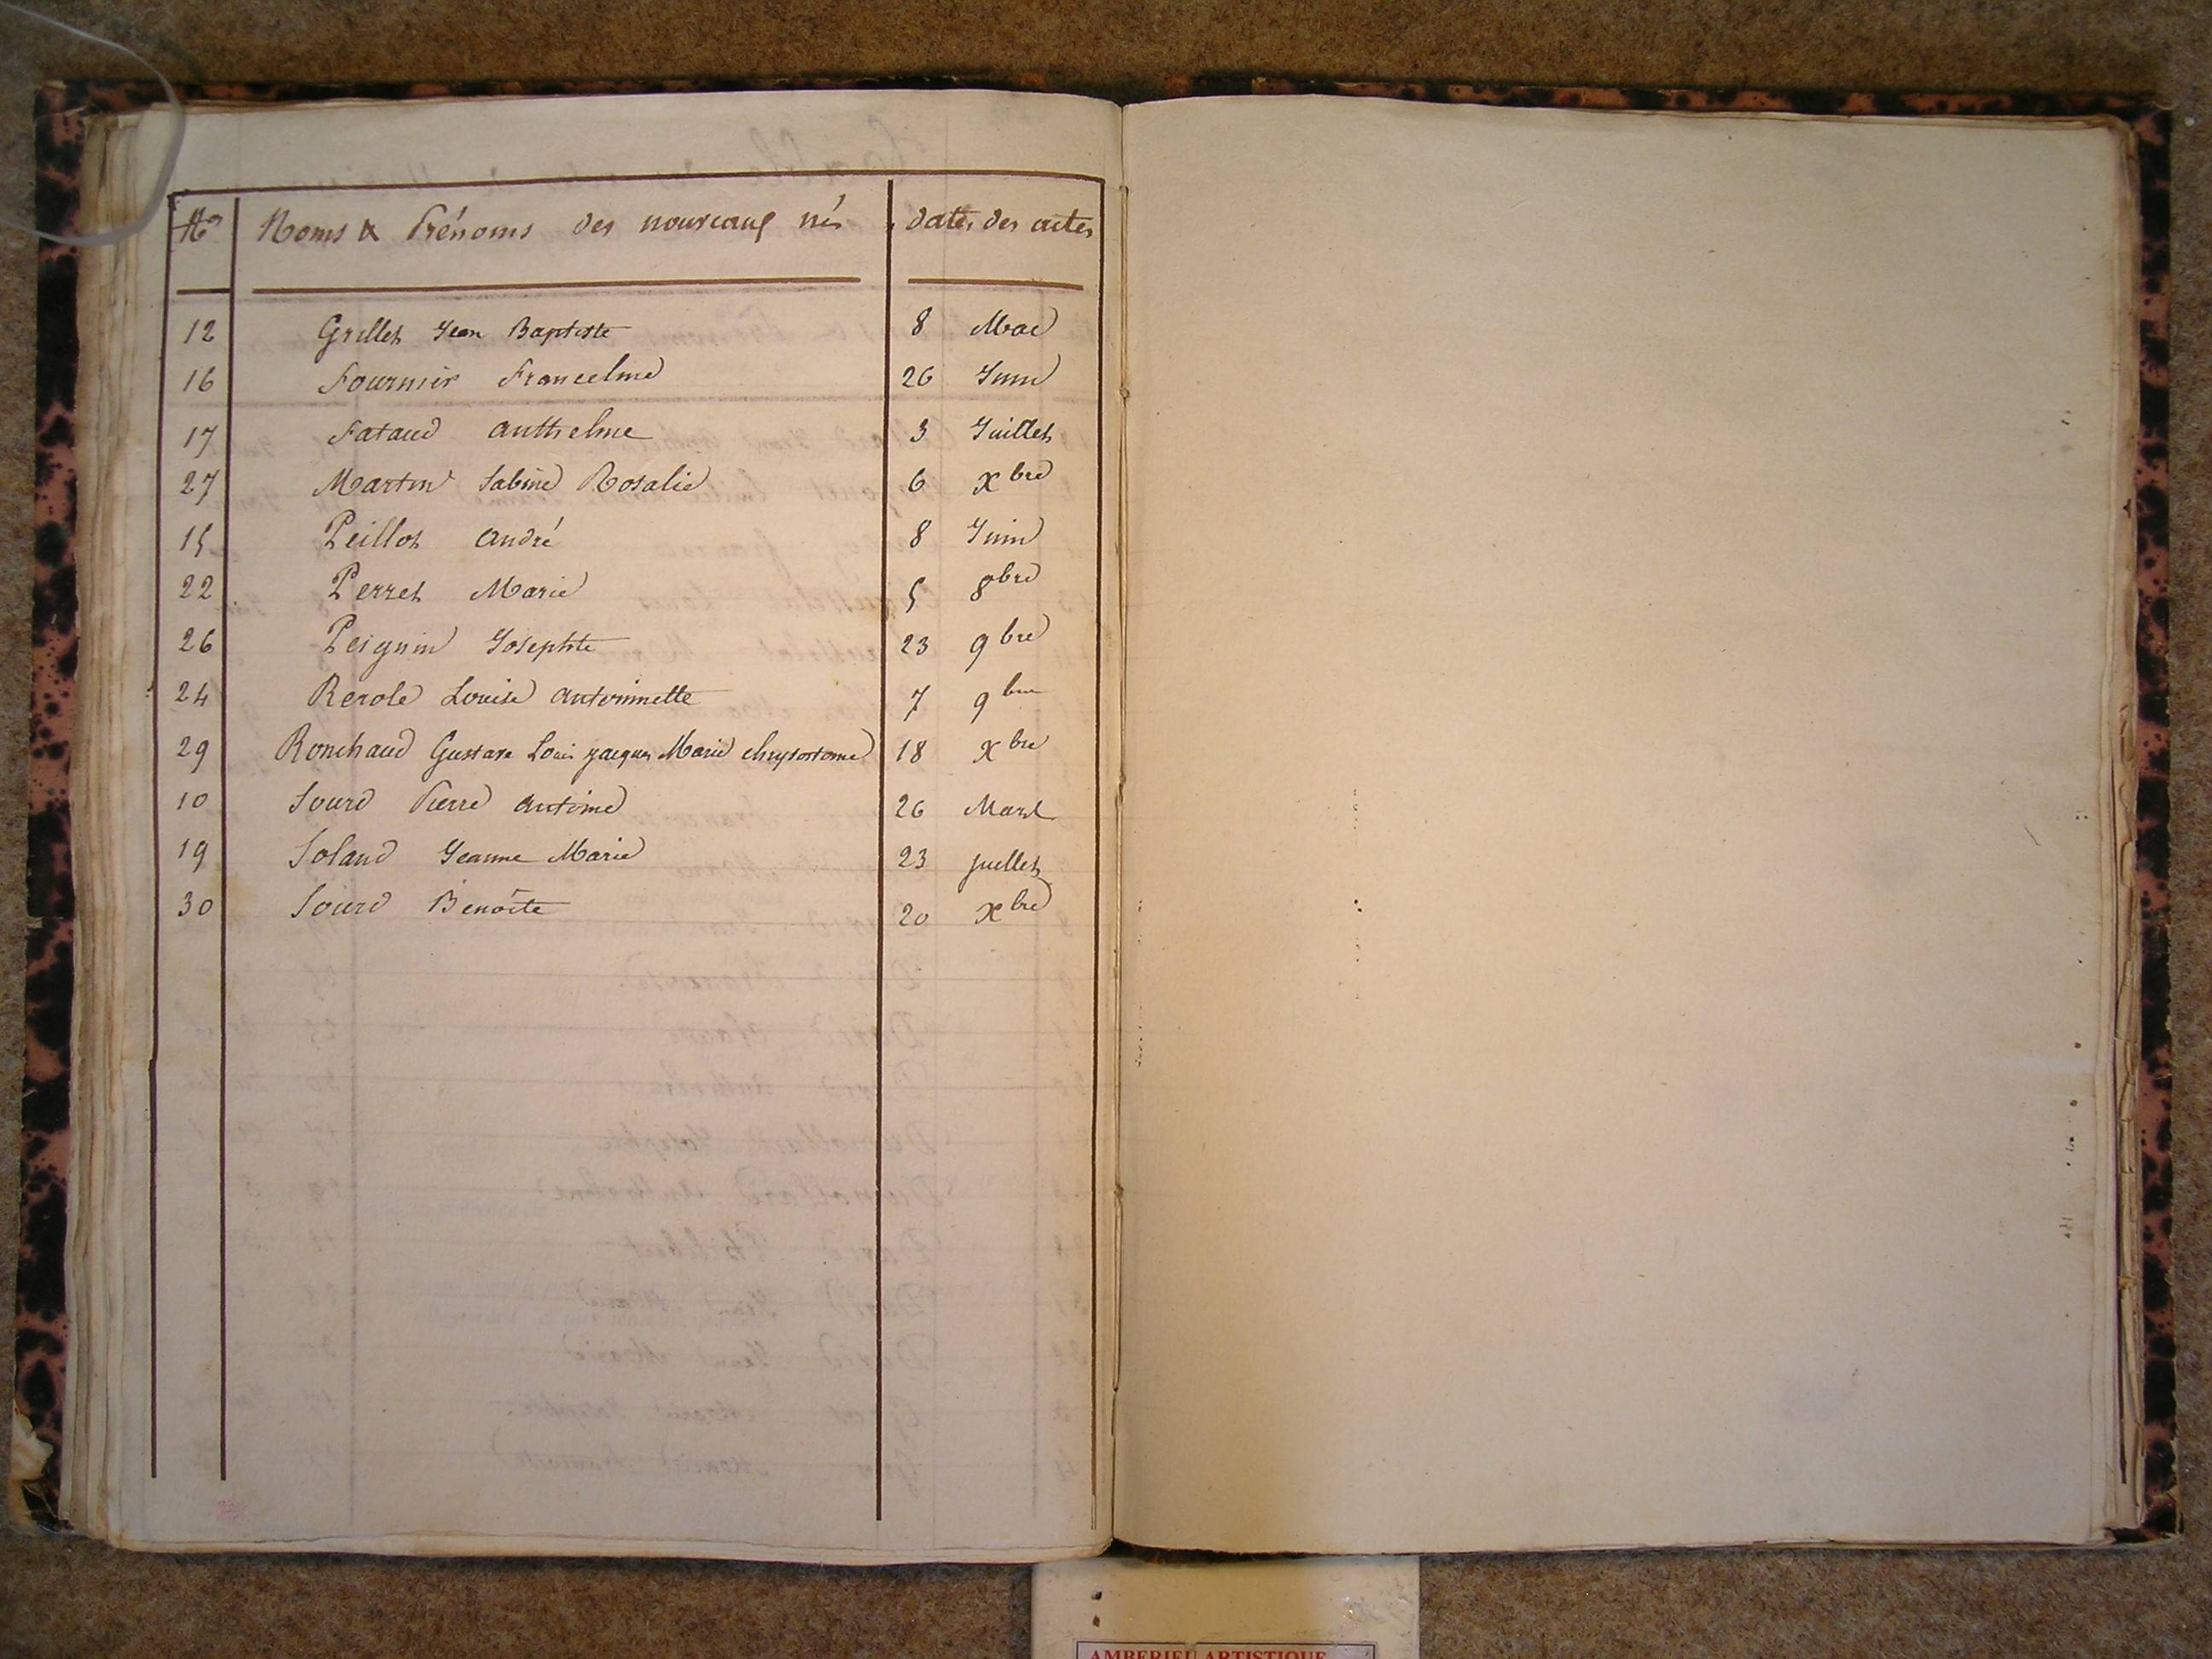 No Noms & Prénoms des nouveaux nés dates des actes
12 Grillet Jean Baptiste 8 Mai
16 Fournier Francelme 26 Juin
17 Fataud anthelme 3 Juillet
27 Martin Sabine Rosalie 6 Xbre
15 Peillot andré 8 Juin
22 Perret Marie 5 8bre
26 Peignin Josephte 23 9bre
24 Rerole Louise antoinette 7 9bre
29 Ronchaud Gustave Louis jacques Marie chrysostome 18 Xbre
10 Sourd Pierre antoine 26 Mars
19 Soland Jeanne Marie 23 juillet
30 Sourd Benoîte 20 Xbre
AMBERIEU ARTISTIQUE